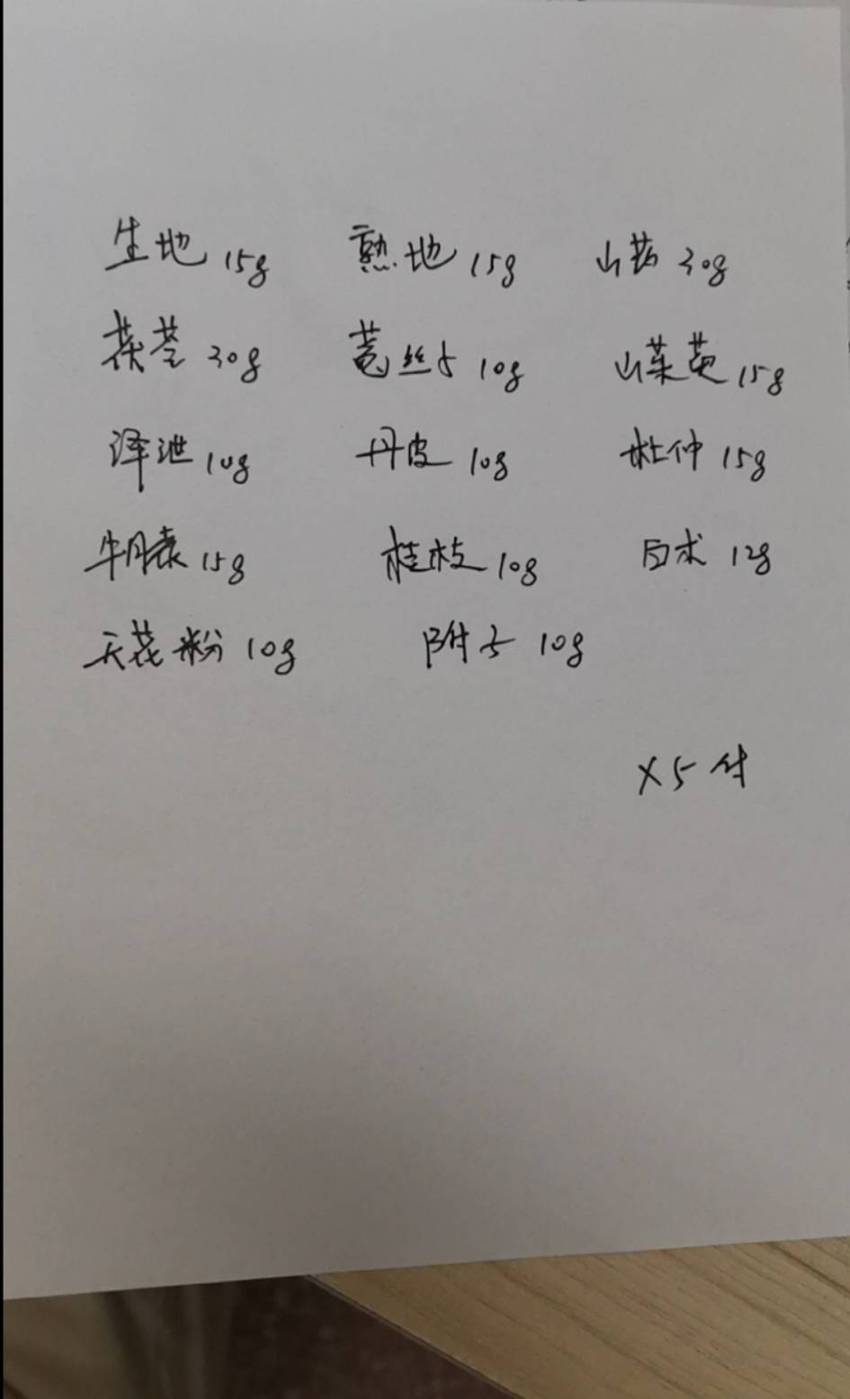 生地 15g 熟地 15g 山药 30g
茯苓 30g 菟丝子 10g 山茱萸 15g
泽泄 10g 丹皮 10g 杜仲 15g
牛膝 15g 桂枝 10g 白术 12g
天花粉 10g 附子 10g
×5付